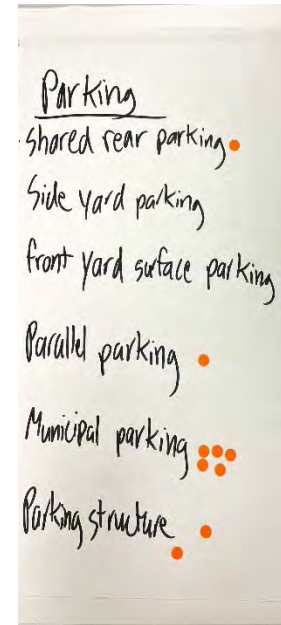 Parking
shared rear parking
Side yard parking
front yard surface parking
Parallel parking
Municipal parking
Parking structure